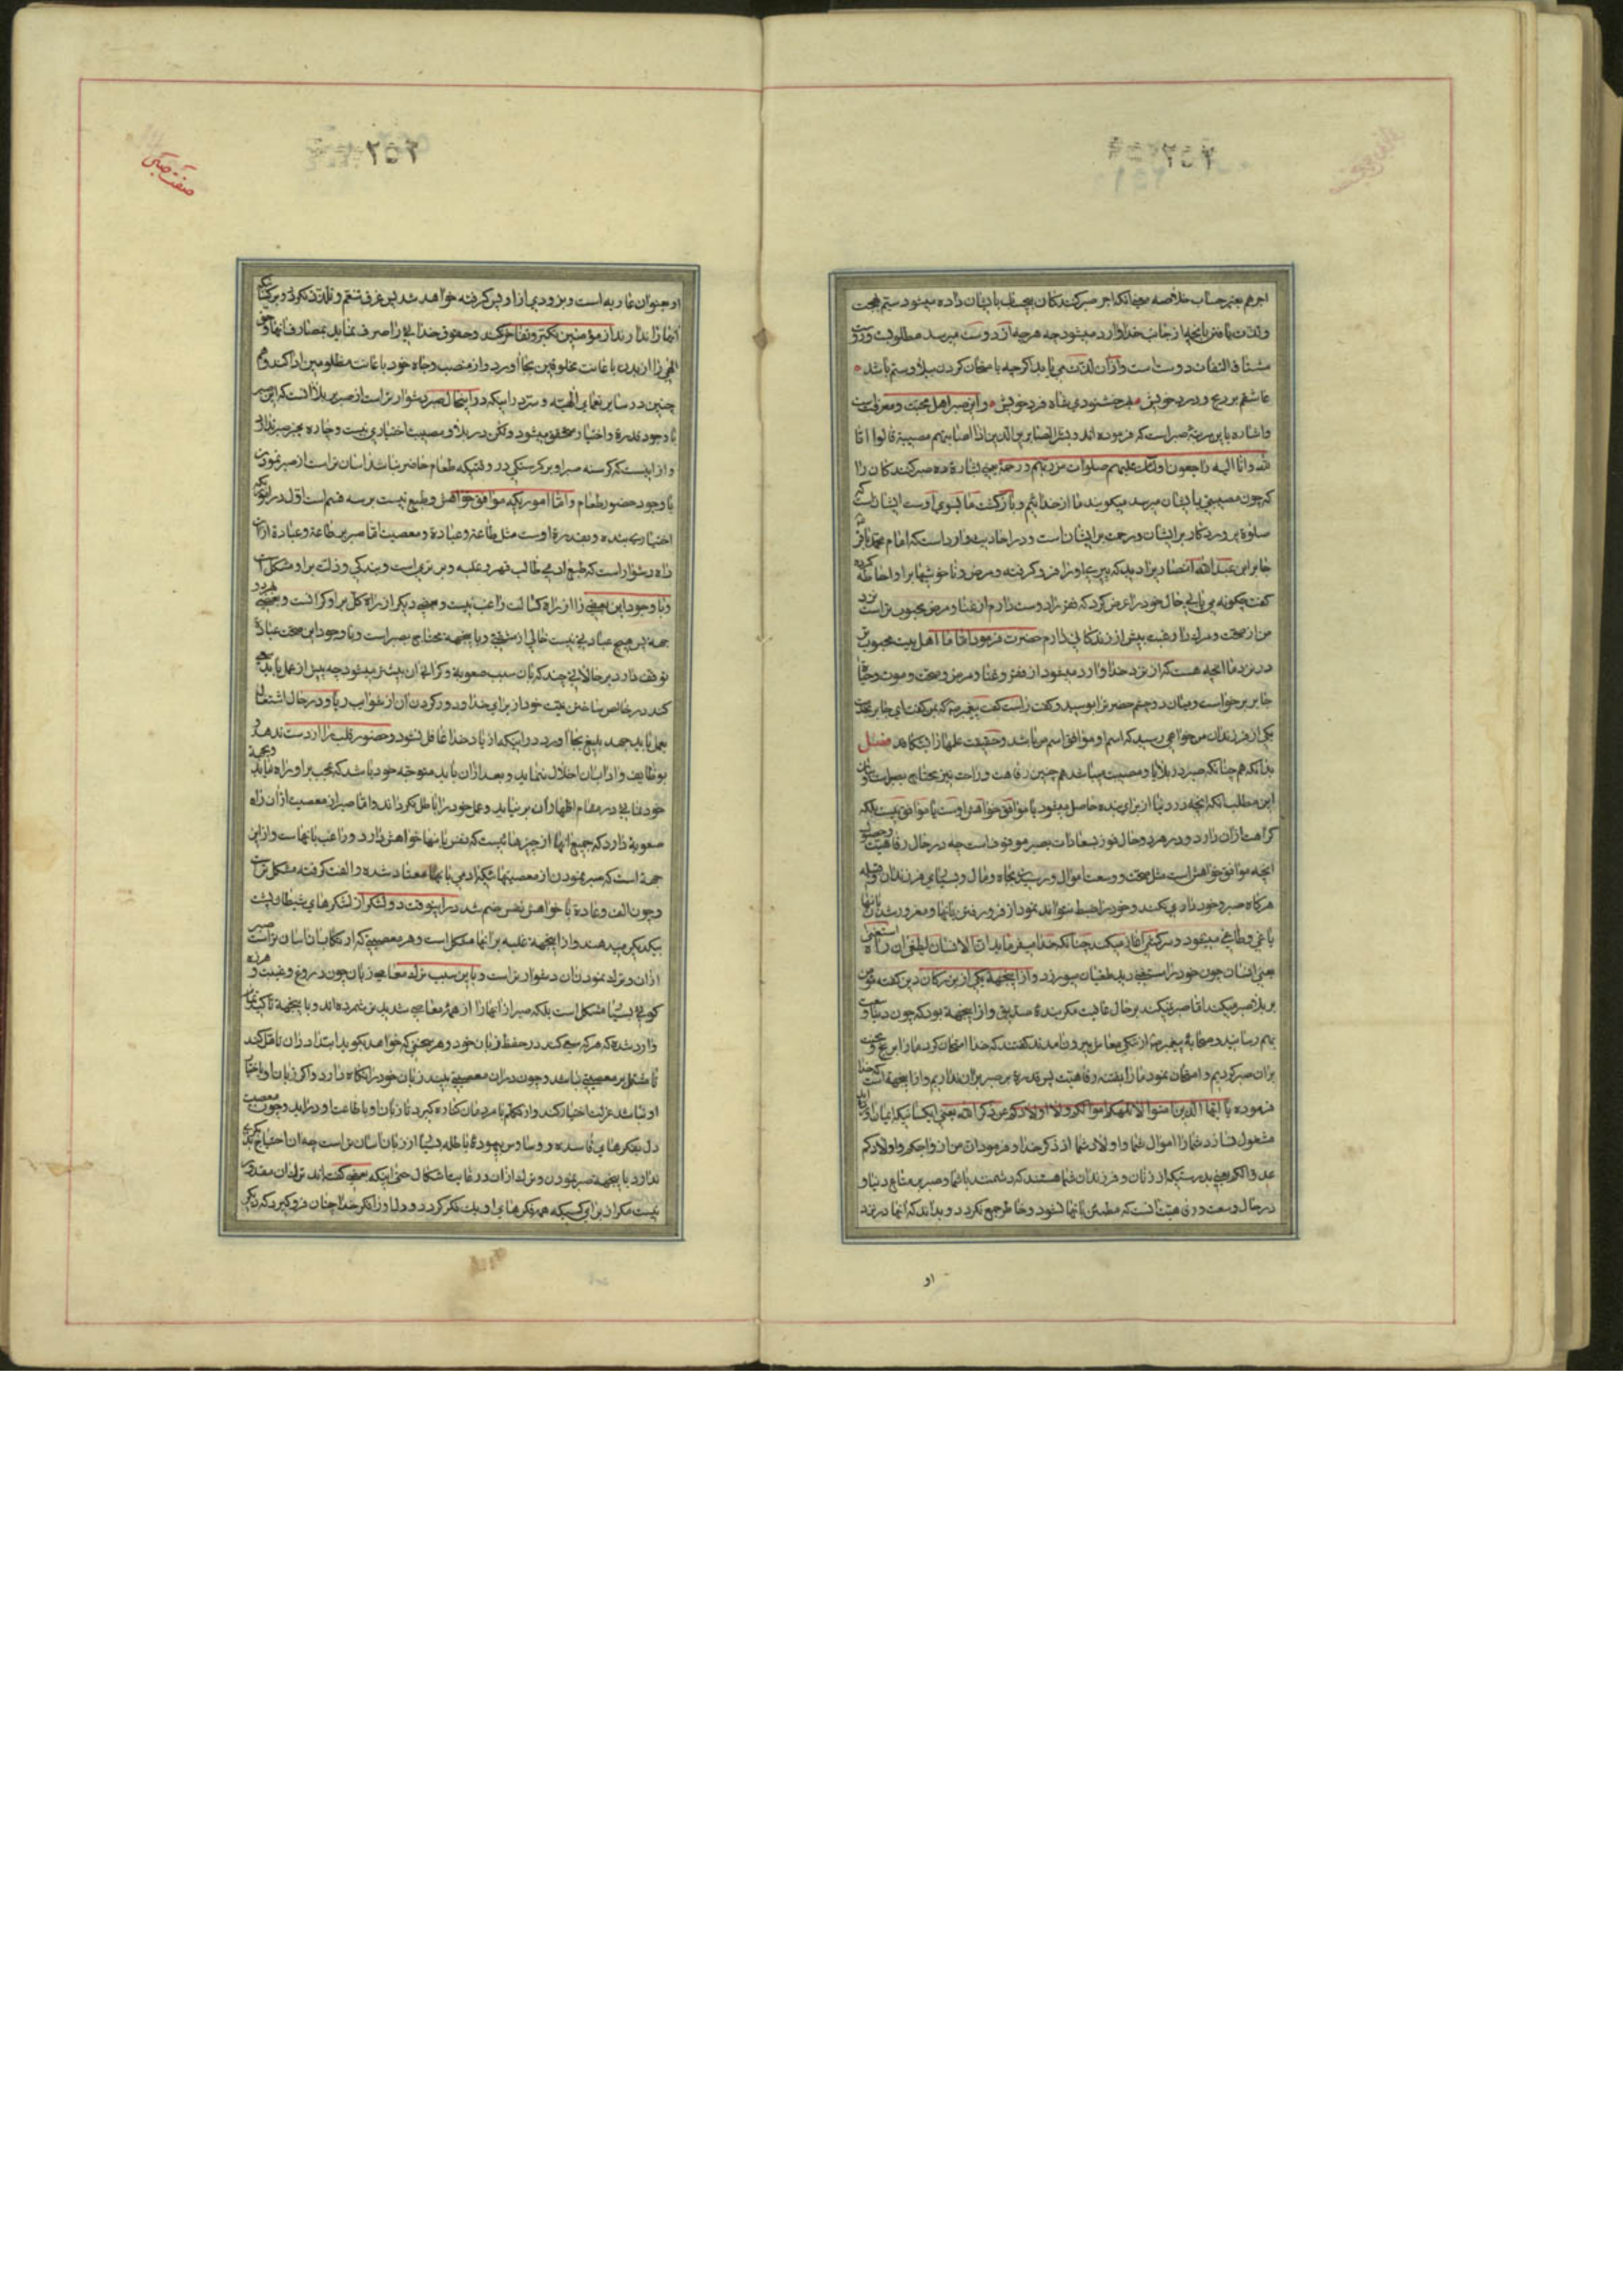 اجرهم بغیر حساب خلاصه معنی آنکه اجر صبر کنندگان بی حساب بایشان داده میشود سیم بهجت
و لذت یافتن بآنچه از جانب خدا وارد میشود چه هر چه از دوست میرسد مطلوبست و
مشتاق التفات دوست است و از آن لذت می یابد اگر چه بامتحان کردن ببلا و ستم باشد
عاشقم بر رنج و درد خویش بهر خشنودی شاه فرد خویش و این صبر اهل محبت و معرفت است
و اشاره باین مرتبهٔ صبر است که فرموده اند و بشر الصابرین الذین اذا اصابتهم مصیبة قالوا انا
لله و انا الیه راجعون اولئک علیهم صلوات من ربهم و رحمة یعنی بشارة ده صبر کنندگان را
که چون مصیبتی بایشان میرسد میگویند ما از خدائیم و بازگشت ما بسوی اوست ایشانراست
صلوة پروردگار بر ایشان و رحمت بر ایشان است و در احادیث وارد است که امام محمد باقر
جابر ابن عبد الله انصاری را دید که پیری او را فرو گرفته و مرض و ناخوشیها بر او احاطه کرده
گفت چگونه می یابی حال خود را عرض کرد که فقر را دوست دارم از غنا و مرض محبوب تر است نزد
من از صحت و مرک را رغبت بیش از زندگانی دارم حضرت فرمود اما ما اهل بیت محبوب
در نزد ما آنچه هست که از نزد خدا وارد میشود از فقر و غنا و مرض و صحت و موت و حیات
جابر برخواست و میان دو چشم حضرت را بوسید و گفت راست گفت پیغمبر که بمن گفت ای جابر
یکی از فرزندان من خواهی رسید که اسم او موافق اسم من باشد و حقیقت علمها را بشکافد فصل
بدانکه هم چنانکه صبر در بلایا و مصیبت میباشد هم چنین رفاهت و راحت نیز محتاج بصبر است
این مطلب آنکه آنچه در دنیا از برای بنده حاصل میشود یا موافق خواهش اوست یا موافق نیست بلکه
کراهت از آن دارد و در هر دو حال فوز بسعادات بصبر موقوف است چه در حال رفاهیت و حصول
آنچه موافق خواهش است مثل صحت و وسعت اموال و رسیدن بجاه و مال و بسیاری فرزندان و قبیله
هر گاه صبر و خودداری نکند و خود را ضبط نتواند نمود از فرو رفتن بآنها و مغرور شدن بآنها
یاغی و طاغی میشود و سرکشی آغاز میکند چنانکه خدا میفرماید ان الانسان لیطغی ان راه استغنی
یعنی انسان چون خود را مستغنی دید طغیان میورزد و از اینجهة یکی از بزرگان دین گفته مؤمن
بر بلا صبر میکند اما صبر نمیکند بر حال عافیت مگر بندهٔ صدیق و از اینجهة بود که چون دنیا
بهم رسانید و صحابهٔ پیغمبر از تنگی معاش بیرون آمدند گفتند که خدا امتحان کرد ما را برنج و محنت
بر آن صبر کردیم و امتحان نمود ما را بفتنه و رفاهیت پس قدرة بر صبر بر آن نداریم و از اینجهة است که خدا
فرموده یا ایها الذین آمنوا لا تلهکم اموالکم و لا اولادکم عن ذکر الله یعنی ای کسانیکه ایمان آورده اید
مشغول نسازد شما را اموال شما و اولاد شما از ذکر خدا و فرمود ان من ازواجکم و اولادکم
عدوا لکم یعنی بدرستیکه از زنان و فرزندان شما هستند که دشمنند با شما و صبر بر متاع دنیا و
در حال وسعت و رفاهیت آنست که مطمئن بآنها نشود و خاطر جمع نگردد و بداند که آنها در نزد
او
صفت صبر
۲۵۲
او بعنوان عاریه است و بزودی از او پس گرفته خواهد شد پس غرق تنعم و تلذذ نگردد و بر کسانیکه
آنها را ندارند از مؤمنین تکبر و تفاخر نکند و حقوق خدائی را صرف نماید بمصارف آنها
الهی را از بدن باعانت مخلوقین بجا آورد و از منصب و جاه خود باعانت مظلومین ادا کند و هم
چنین در سایر نعمای الهیه و سر در اینکه در اینحال صبر دشوارتر است از صبر بر بلا آنست که این صبر
با وجود قدرة و اختیار متحقق میشود ولکن در بلا و مصیبت اختیاری نیست و چاره بجز صبر ندارد
و از اینست که گرسنه صبر او بر گرسنگی در وقتیکه طعام حاضر نباشد آسان تر است از صبر نمودن
با وجود حضور طعام و اما اموریکه موافق خواهش و طبع نیست بر سه قسم است اول در اموریکه
اختیاری بنده و بقدرة اوست مثل طاعة و عبادة و معصیت اما صبر بر طاعة و عبادة از آن
راه دشوار است که طبع آدمی طالب قهر و غلبه و برتریست و بندگی و ذلت بر او مشکل است
و با وجود این بعضی را از راه کسالت راغب نیست و بعضی دیگر از راه بخل بر او گرانست و بعضی هر دو
جهة پس هیچ عبادتی نیست خالی از مشقتی و باینجهة محتاج بصبر است و با وجود این صحت عبادة
توقف دارد بر حالاتی چند که بآن سبب صعوبة و گرانی آن بیشتر میشود چه پیش از عمل باید سعی
کند در خالص ساختن نیت خود از برای خدا و دور کردن آن از شوایب ریا و در حال اشتغال
بعمل باید جهد بلیغ بجا آورد در اینکه از یاد خدا غافل نشود و حضور قلب را از دست ندهد و
بوظایف و آداب آن اخلال ننماید و بعد از آن باید متوجه خود باشد که عجب بر او راه نیابد
خودنمائی در مقام اظهار آن بر نیاید و عمل خود را باطل نگرداند و اما صبر از معصیت از آن راه
صعوبة دارد که جمیع آنها از چیزهائیست که نفس بآنها خواهش دارد و راغب بآنهاست و از این
جهة است که صبر نمودن از معصیتهائیکه آدمی بآنها معتاد شده و الفت گرفته مشکل تر است
و چون الف و عادة با خواهش نفس ضم شد در اینوقت دو لشکر از لشکرهای شیطان پشت
بیکدیگر میدهند و از اینجهة غلبه بر آنها مشکل است و هر معصیتی که ارتکاب آن آسان تر است صبر
از آن و ترک نمودن آن دشوارتر است و باین سبب ترک معاصی زبان چون دروغ و غیبت و هرزه
گوئی بسیار مشکل است بلکه صبر از آنها را از همهٔ معاصی شدیدتر شمرده اند و باینجهة تاکید
وارد شده که هر که سعی کند در حفظ زبان خود و هر سخنی که خواهد بگوید ابتدا در آن تامل کند
تا مشتمل بر معصیتی نباشد و چون در آن معصیتی بیند زبان خود را نگاه دارد و اگر زبان او باختیار
او نباشد عزلت اختیار کند و از تکلم با مردمان کناره گیرد تا زبان او باطاعت او درآید و چون معصیت
دل بفکرهای فاسده و وساوس بیهودهٔ باطله بسیار از زبان آسان تر است چه آن احتیاج بدیگری
ندارد باینجهة صبر نمودن و ترک از آن در غایت اشکال حتی اینکه بعضی گفته اند ترک آن مقدور
نیست مگر از برای کسیکه همه فکرهای او یک فکر گردد و دل او را فکر خدا چنان فرو گیرد که دیگر